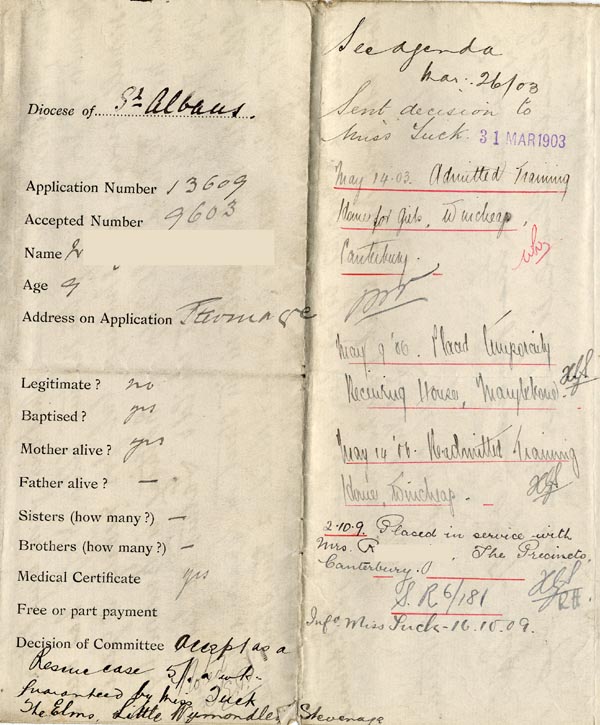 Diocese of St Albans.
Application Number 13609
Accepted Number 9603
Name
Age 9
Address on Application Stevenage
Legitimate? no
Baptised? yes
Mother alive? yes
Father alive? —
Sisters (how many?) —
Brothers (how many?) —
Medical Certificate yes
Free or part payment
Decision of Committee Accept as a
Rescue case 5/. a wk.
Guaranteed by Miss Tuck
The Elms, Little Wymondley Stevenage
See agenda
Mar: 26/03
Sent decision to
Miss Tuck. 31 MAR 1903
May 14.03. Admitted Training
Home for Girls, Wincheap,
Canterbury.
May 9 '06. Placed Temporarily
Receiving House, Marylebone.
May 14 '06. Re-admitted Training
Home, Wincheap.
2.10.9. Placed in service with
Mrs. R , The Precincts,
Canterbury.
S. R 6/181
Inf. Miss Tuck - 16.10.09.